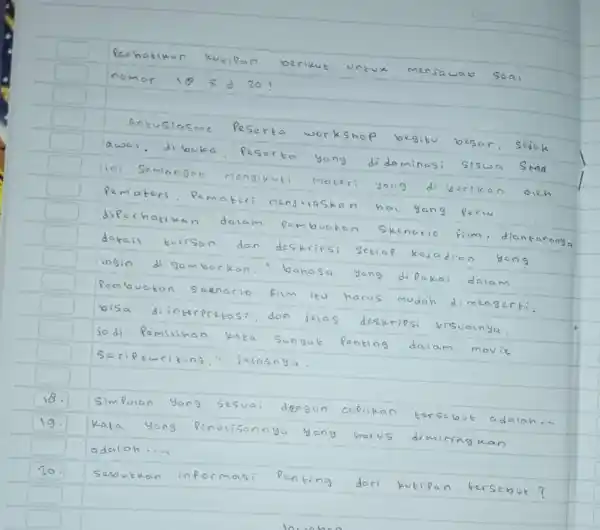 Perhatikan kutipan berikut untuk menjawab soal
nomor 18 s d 20!
Antusiasme Peserta workshop begitu besar, sejak
awal dibuka. Peserta yang didominasi siswa SMA
ini semangat mengikuti materi yang di berikan oleh
Pemateri. Pemateri menjelaskan hal yang perlu
diperhatikan dalam Pembuatan Skenario film, diantaranya
detail tulisan dan deskripsi setiap kejadian yang
ingin di gambarkan. " bahasa yang dipakai dalam
Pembuatan Skenario film itu harus mudah dimengerti.
bisa di interpretasi, dan jelas deskripsi visualnya.
Jadi Pemilihan kata sangat Penting dalam movie
Scriptwriting," jelasnya.
18. Simpulan yang sesuai dengan cuplikan tersebut adalah...
19. Kata yang Penulisannya yang harus dimiringkan
adalah ....
20. Sebutkan informasi Penting dari kutipan tersebut ?